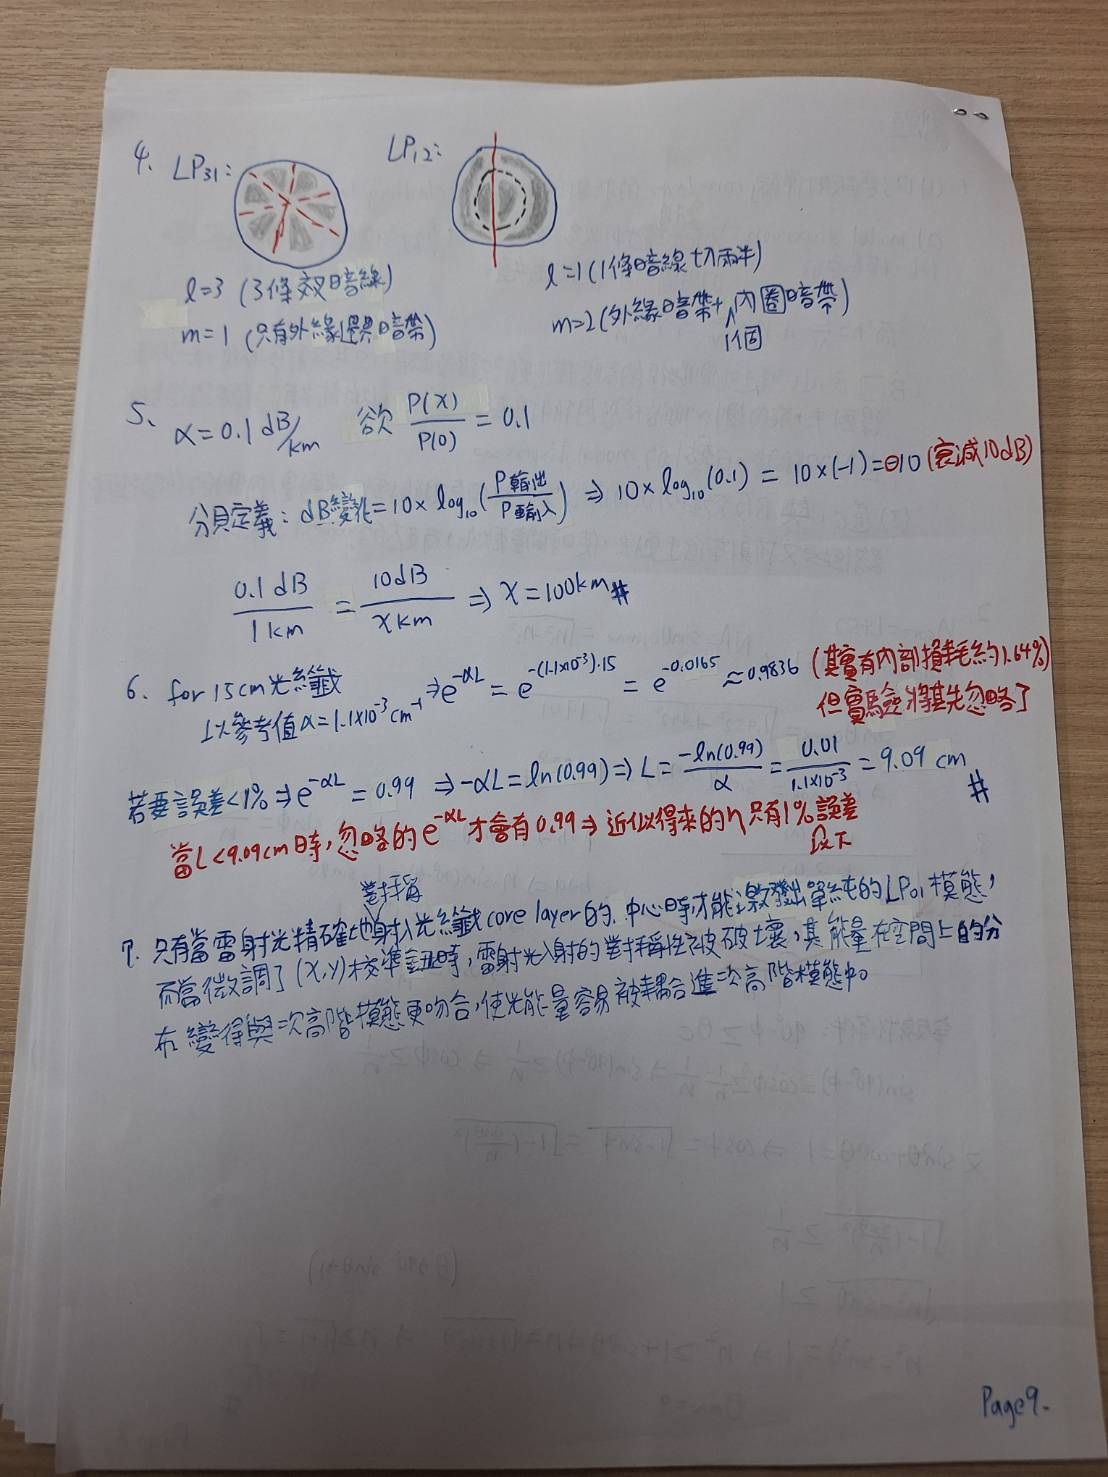 4. LP31: LP12:
l=3 (3條交叉暗線) l=1 (1條暗線切兩半)
m=1 (只有外緣邊界暗帶) m=2 (外緣暗帶+1個內圈暗帶)
5. α=0.1 dB/km 欲 P(x)/P(0) = 0.1
分貝定義: dB變化=10×log10(P輸出/P輸入) ⇒ 10×log10(0.1) = 10×(-1)=-10 (衰減10dB)
0.1dB/1km = 10dB/xkm ⇒ x=100km#
6. for 15cm光纖
以參考值α=1.1×10^-3 cm^-1 ⇒ e^-αL = e^-(1.1×10^-3)·15 = e^-0.0165 ≈ 0.9836 (其實有內部損耗約1.64%)
但實驗將其先忽略了
若要誤差<1% ⇒ e^-αL = 0.99 ⇒ -αL = ln(0.99) ⇒ L = -ln(0.99)/α = 0.01/1.1×10^-3 = 9.09 cm #
當L<9.09cm時,忽略的e^-αL才會有0.99 ⇒ 近似得來的η只有1%誤差
以下
7. 只有當雷射光精確地對稱射入光纖core layer的中心時,才能激發出單純的LP01模態,
而當微調了(x,y)校準鈕時,雷射光入射的對稱性被破壞,其能量在空間上的分
布變得與次高階模態更吻合,使光能量容易被耦合進次高階模態中。
Page9.